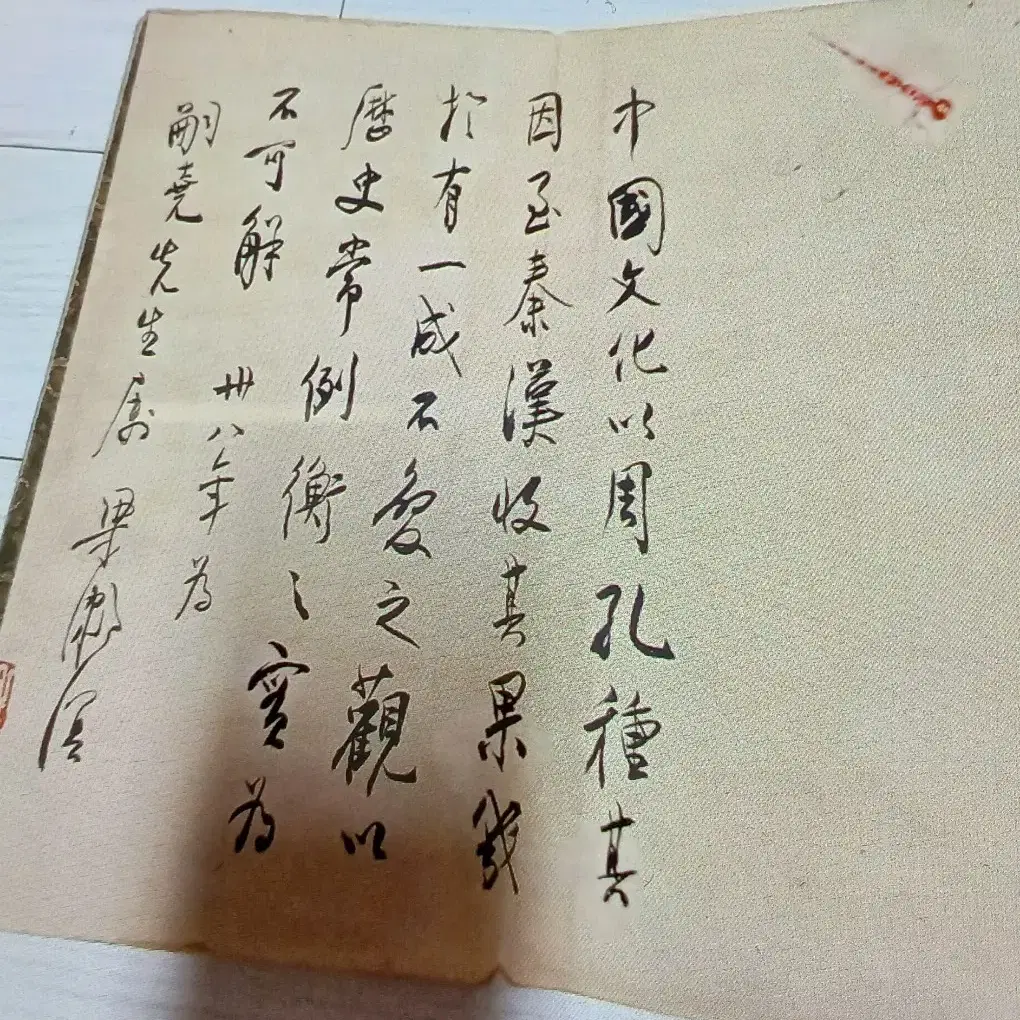 中國文化以周孔種其
因至秦漢收其果幾
於有一成不變之觀以
歷史常例衡之實為
不可解 卅八年為
嗣堯先生屬 梁漱溟